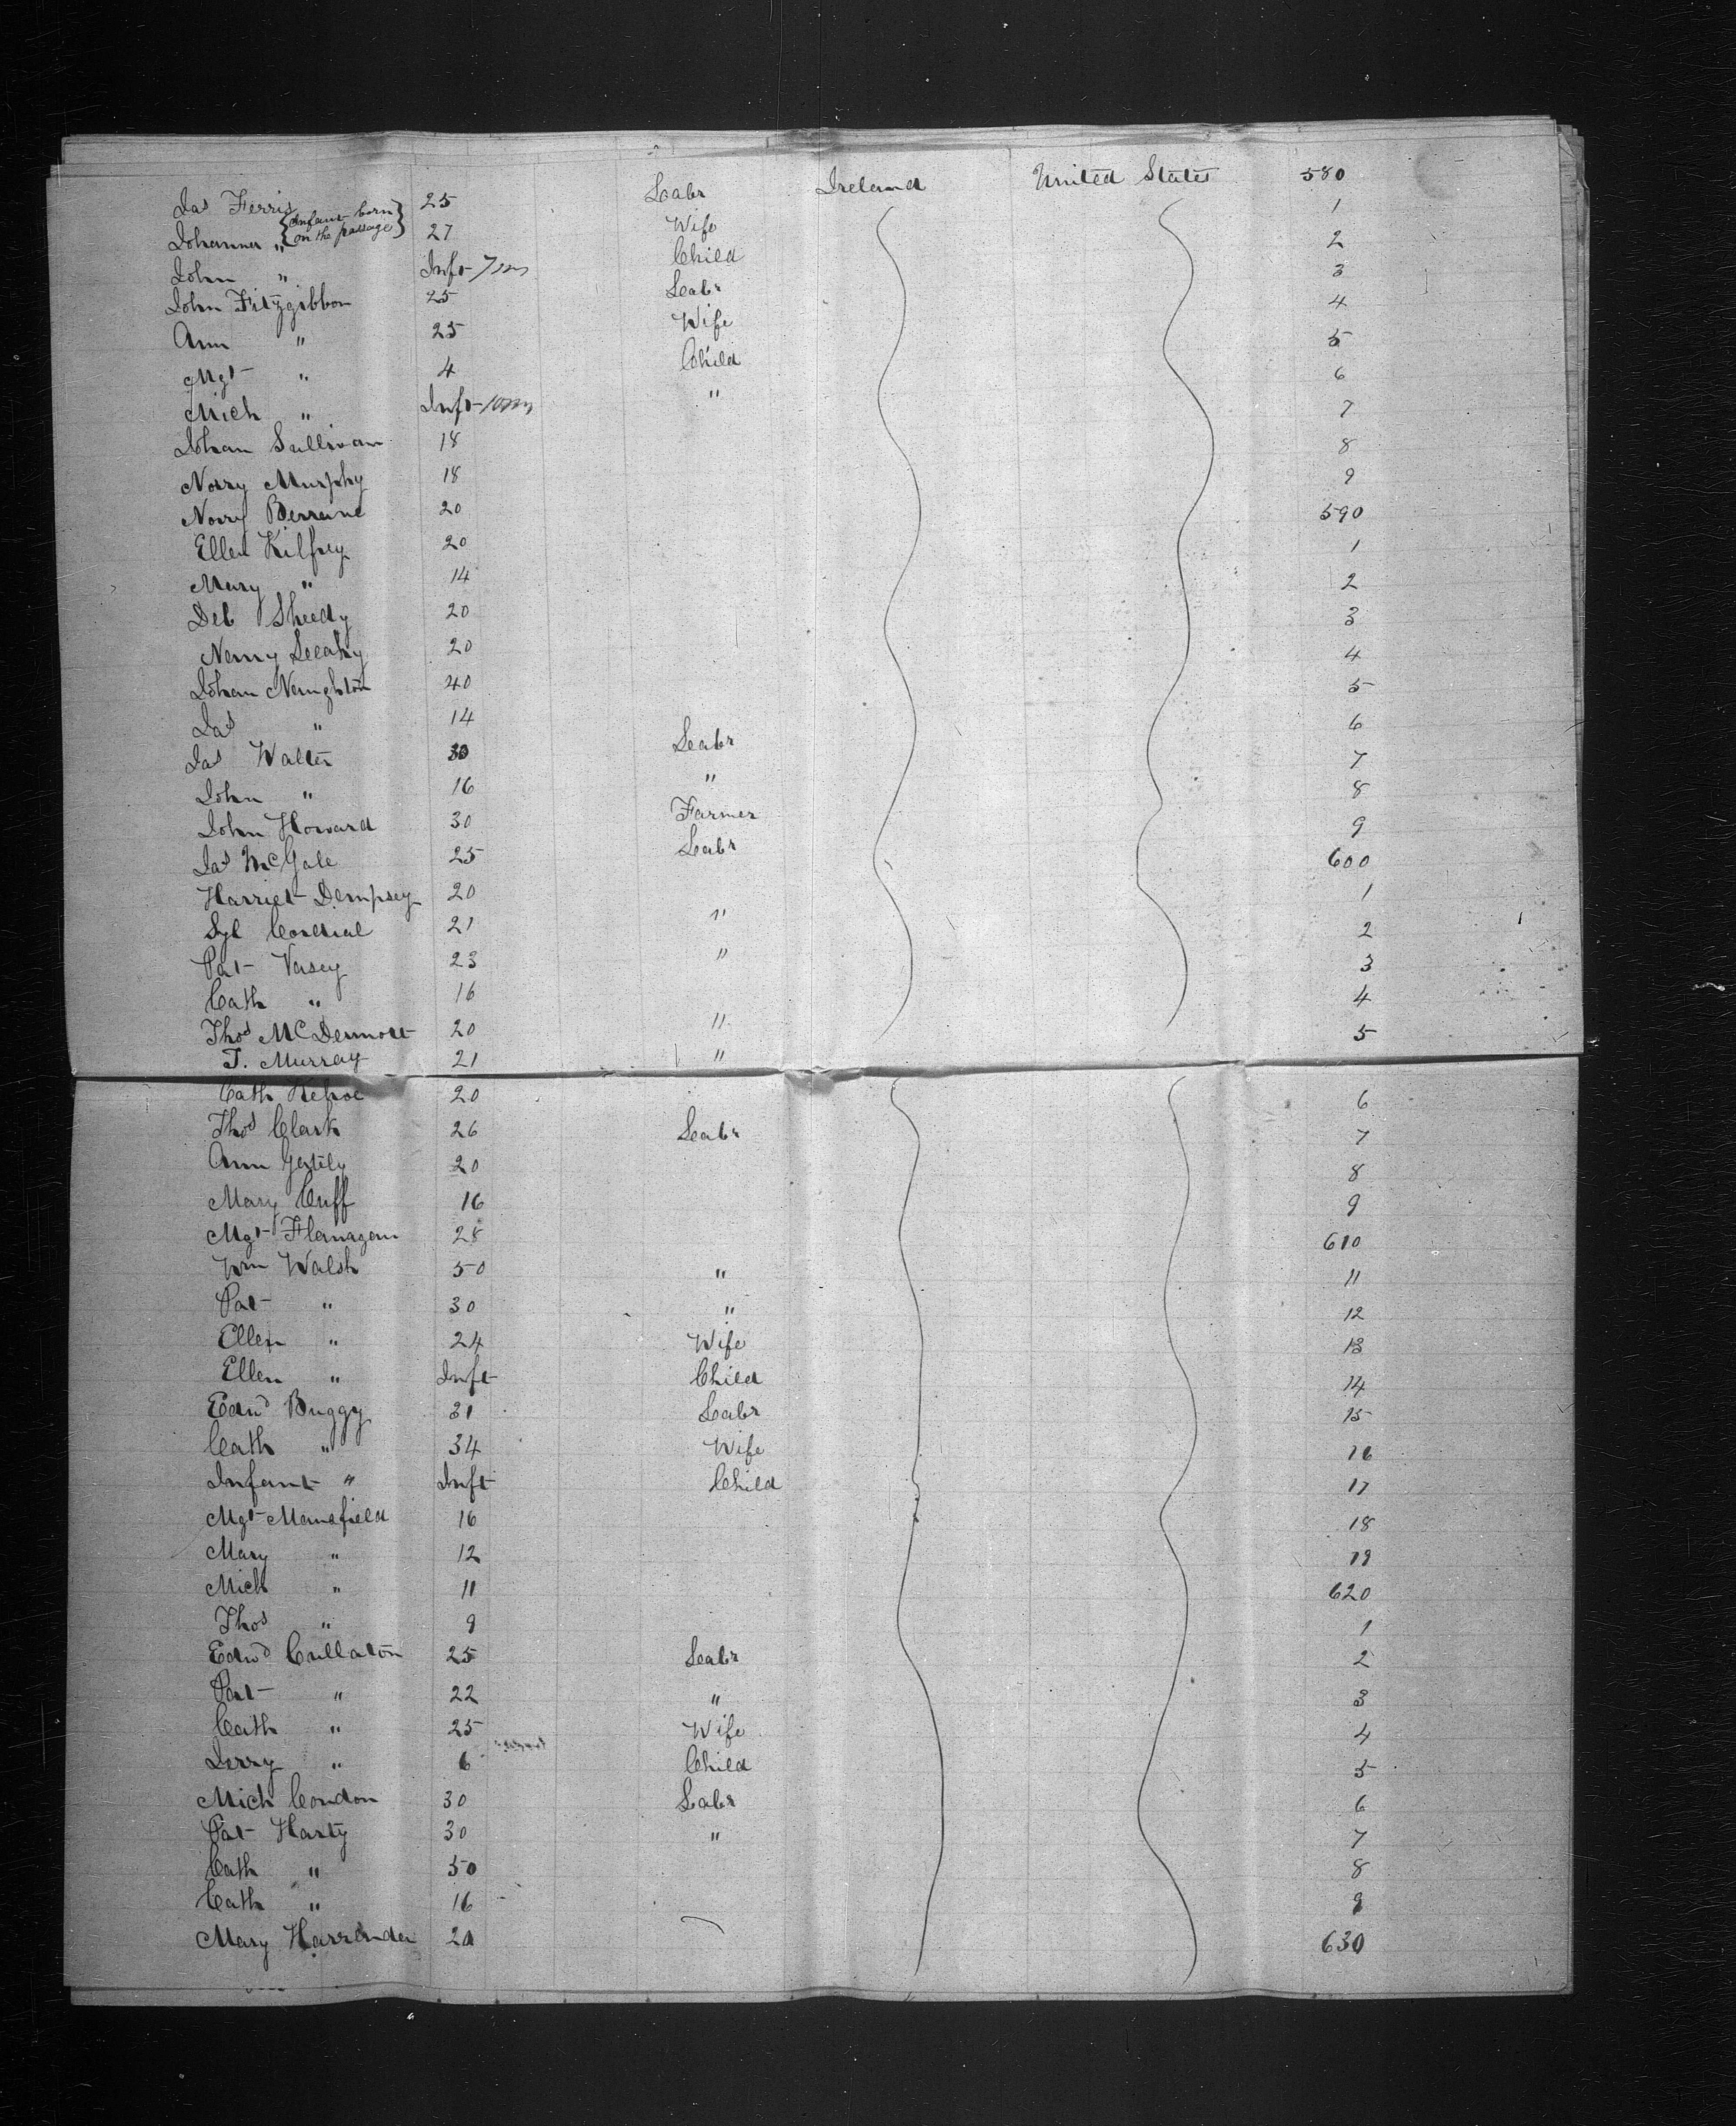 Jas Ferris 25 Labr Ireland United States 580
Johanna " {Infant born on the passage} 27 Wife 1
John " Inft 7m Child 2
John Fitzgibbon 25 Labr 3
Ann " 25 Wife 4
Mgt " 4 Child 5
Mich " Inft 10m " 6
Johan Sullivan 18 7
Norry Murphy 18 8
Norry 20 9
Ellen Kilfrey 20 590
Mary " 14 1
Deb Sheedy 20 2
Nanny Leahy 20 3
Johan Naughton 40 4
Jas " 14 5
Jas Walter 30 Labr 6
John " 16 " 7
John Howard 30 Farmer 8
Jas McGale 25 Labr 9
Harriet Dempsey 20 600
Syl 21 " 1
Pat Vasey 23 " 2
Cath " 16 3
Thos McDermott 20 " 4
T. Murray 21 " 5
Cath Kehoe 20 6
Thos Clark 26 Labr 7
Ann 20 8
Mary Cuff 16 9
Mgt Flanagan 28 610
Wm Walsh 50 " 11
Pat " 30 " 12
Ellen " 24 Wife 13
Ellen " Inft Child 14
Edwd Buggy 31 Labr 15
Cath " 34 Wife 16
Infant " Inft Child 17
Mgt Mansfield 16 18
Mary " 12 19
Mich " 11 620
Thos " 9 1
Edwd Cullaton 25 Labr 2
Pat " 22 " 3
Cath " 25 Wife 4
Jerry " 6 Child 5
Mich Condon 30 Labr 6
Pat Harty 30 " 7
Cath " 50 8
Cath " 16 9
Mary 20 630